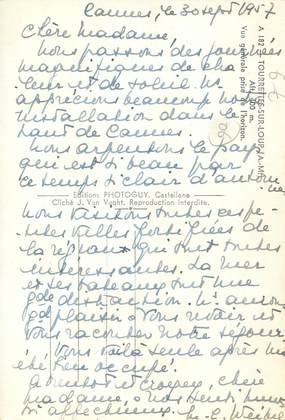 Cannes, le 30 sept 1957
Chère Madame,
Nous passons des journées
magnifiques de cha
leur et de soleil. Ns
apprécions beaucoup nos
installation dans le
haut de Cannes.
Nous arpentons le pays
qui est si beau par
ce temps si clair d'autom
ne
Editions PHOTOGUY, Castellane
Cliché J. Van Vught. Reproduction interdite.
Nous visitons toutes ces pe-
tites villes fortifiées de
la région qui sont toutes
intéressantes. La mer
et ses bateaux sont une
gde distraction. Ns aurons
gd plaisir à vous revoir et
vous raconter notre séjour.
Vous voilà seule après un
été bien occupé.
A bientôt et croyez, chère
madame, à nos senti
si affectueux.
A 182 - TOURRETTES-SUR-LOUP (A.-M.)
Alt. 400 m.
Vue générale prise de l'horizon.
6 €